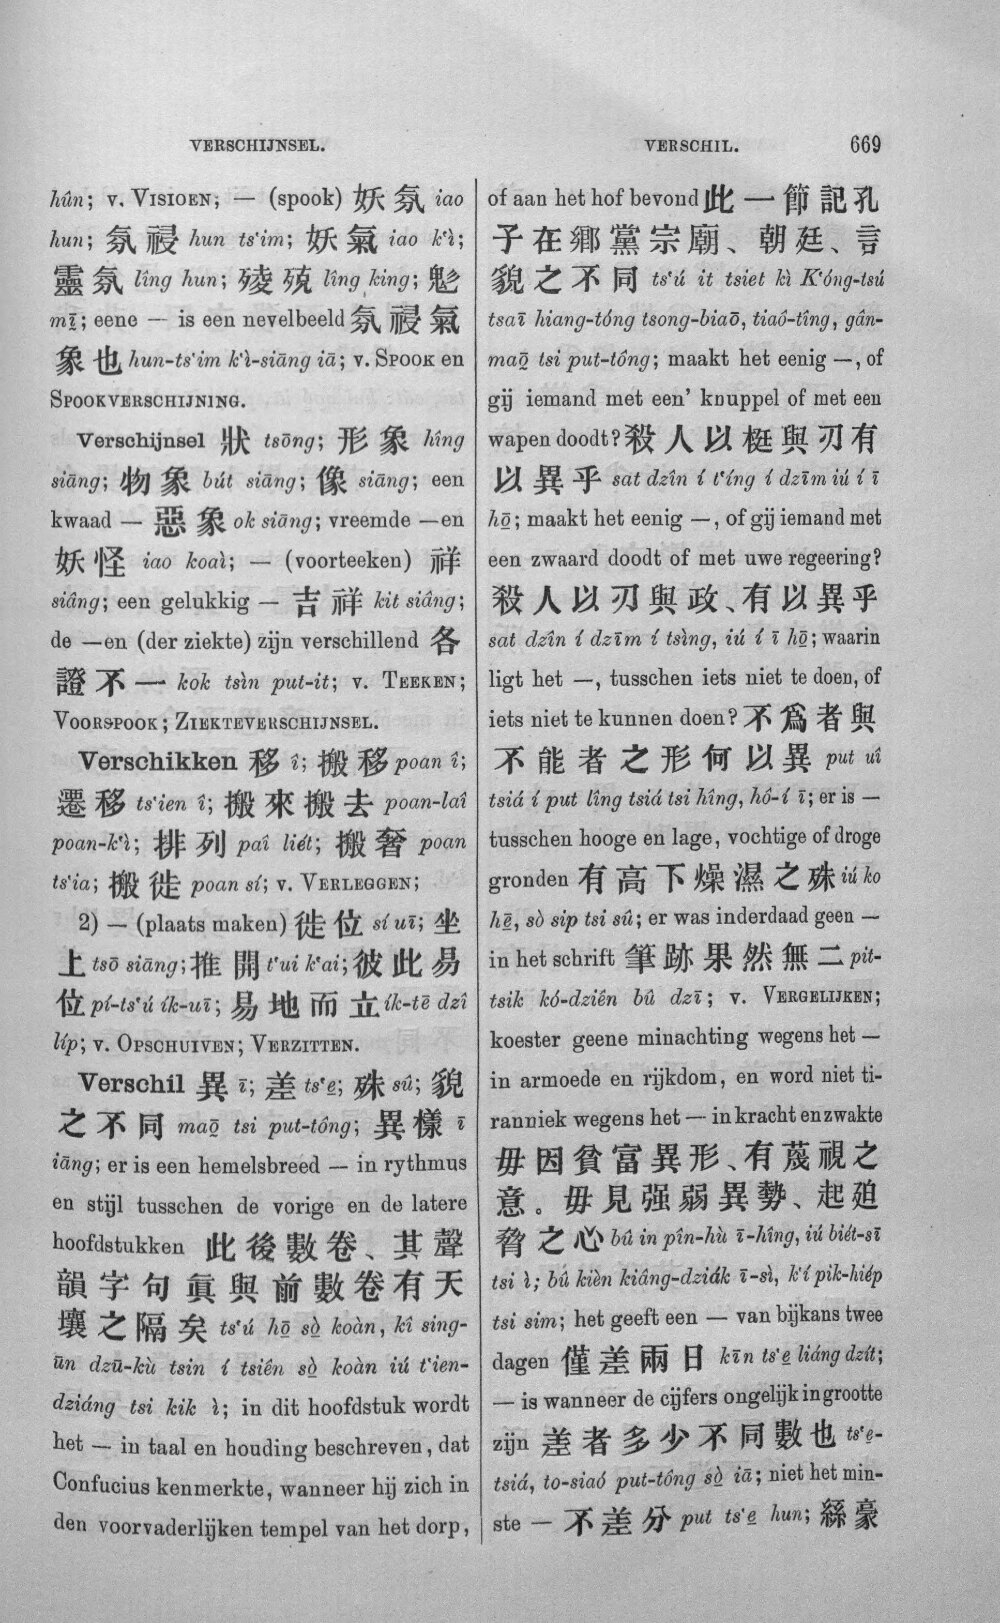 VERSCHIJNSEL.
VERSCHIL.
669
hûn; v. VISIOEN; — (spook) 妖氛 iao
hun; 氛祲 hun ts‘im; 妖氣 iao k‘ì;
靈氛 lîng hun; 㱥殑 lîng king; 鬽
mī; eene — is een nevelbeeld 氛祲氣
象也 hun-ts‘im k‘ì-siāng iā; v. SPOOK en
SPOOKVERSCHIJNING.
Verschijnsel 狀 tsōng; 形象 hîng
siāng; 物象 bút siāng; 像 siāng; een
kwaad — 惡象 ok siāng; vreemde —en
妖怪 iao koaì; — (voorteeken) 祥
siâng; een gelukkig — 吉祥 kit siâng;
de —en (der ziekte) zijn verschillend 各
證不一 kok tsìn put-it; v. TEEKEN;
VOORSPOOK; ZIEKTEVERSCHIJNSEL.
Verschikken 移 î; 搬移 poan î;
遷移 ts‘ien î; 搬來搬去 poan-laî
poan-k‘ì; 排列 paî liét; 搬奢 poan
ts‘ia; 搬徙 poan sí; v. VERLEGGEN;
2) — (plaats maken) 徙位 sí uī; 坐
上 tsō siāng; 推開 t‘ui k‘ai; 彼此易
位 pí-ts‘ú ík-uī; 易地而立 ík-tē dzî
líp; v. OPSCHUIVEN; VERZITTEN.
Verschil 異 ī; 差 ts‘e̱; 殊 sû; 貌
之不同 maō̱ tsi put-tông; 異樣 ī
iāng; er is een hemelsbreed — in rythmus
en stijl tusschen de vorige en de latere
hoofdstukken 此後數卷、其聲
韻字句眞與前數卷有天
壤之隔矣 ts‘ú hō̱ sò̱ koàn, kî sing-
ūn dzū-kù tsin í tsiên sò̱ koàn iú t‘ien-
dziáng tsi kik ì; in dit hoofdstuk wordt
het — in taal en houding beschreven, dat
Confucius kenmerkte, wanneer hij zich in
den voorvaderlijken tempel van het dorp,
of aan het hof bevond 此一節記孔
子在鄉黨宗廟、朝廷、言
貌之不同 ts‘ú it tsiet kì K‘óng-tsú
tsaī hiang-tóng tsong-biaō, tiaô-tîng, gân-
maō̱ tsi put-tông; maakt het eenig —, of
gij iemand met een' knuppel of met een
wapen doodt? 殺人以梃與刃有
以異乎 sat dzîn í t‘íng í dzīm iú í ī
hō̱; maakt het eenig —, of gij iemand met
een zwaard doodt of met uwe regeering?
殺人以刃與政、有以異乎
sat dzîn í dzīm í tsìng, iú í ī hō̱; waarin
ligt het —, tusschen iets niet te doen, of
iets niet te kunnen doen? 不爲者與
不能者之形何以異 put uî
tsiá í put lîng tsiá tsi hîng, hô-í ī; er is —
tusschen hooge en lage, vochtige of droge
gronden 有高下燥濕之殊 iú ko
hē̱, sò sip tsi sû; er was inderdaad geen —
in het schrift 筆跡果然無二 pit-
tsik kó-dziên bû dzī; v. VERGELIJKEN;
koester geene minachting wegens het —
in armoede en rijkdom, en word niet ti-
ranniek wegens het — in kracht en zwakte
毋因貧富異形、有蔑視之
意。毋見强弱異勢、起廹
脅之心 bû in pîn-hù ī-hîng, iú biét-sī
tsi ì; bû kièn kiâng-dziák ī-sì, k‘í pik-hiép
tsi sim; het geeft een — van bijkans twee
dagen 僅差兩日 kīn ts‘e̱ liáng dzít;
— is wanneer de cijfers ongelijk in grootte
zijn 差者多少不同數也 ts‘e̱-
tsiá, to-siaó put-tông sò̱ iā; niet het min-
ste — 不差分 put ts‘e̱ hun; 絲豪